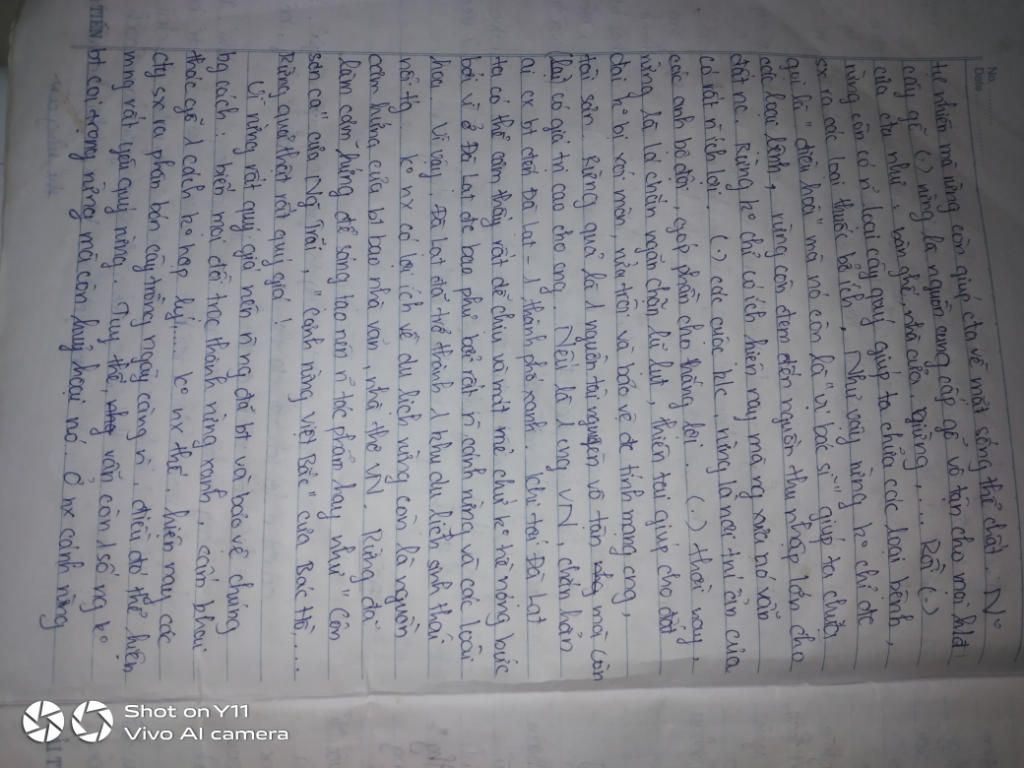 No.
Date
tự nhiên mà rừng còn giúp cta về mặt sống thể chất. Nó
cây gỗ (.) rừng là nguồn cung cấp gỗ vô tận cho mọi
của cta như, bàn ghế, nhà cửa, giường,... Rồi (.)
rừng còn có n loại cây quý giúp ta chữa các loại bệnh,
sx ra các loại thuốc bổ ích. Như vậy rừng ko chỉ đc
gọi là "điều hoà" mà nó còn là "vị bác sĩ" giúp ta chữa
các loại bệnh, rừng còn đem đến nguồn thu nhập lớn cho
đất nc. Rừng ko chỉ có ích hiện nay mà ng xưa nó vẫn
có rất n ích lợi. (.) các cuộc k/c rừng là nơi trú ẩn của
các anh bộ đội, góp phần cho thắng lợi. (.) thời nay,
rừng là lá chắn ngăn chặn lũ lụt, thiên tai giúp cho đất
đai ko bị xói mòn, rửa trôi và bảo vệ đc tính mạng cng,
tài sản. Rừng quả là 1 nguồn tài nguyên vô tận mà còn
có giá trị cao cho cng. Nếu là 1 cng VN chắc hẳn
ai cx bt đến Đà Lạt - 1 thành phố xanh. Khi tới Đà Lạt
ta có thể cảm thấy rất dễ chịu và mát mẻ chứ ko hề nóng bức
bởi vì ở Đà Lạt đc bao phủ bởi rất n cánh rừng và các loài
hoa. Vì vậy, Đà Lạt đã trở thành 1 khu du lịch sinh thái
nổi tg. Ko nx có lợi ích về du lịch rừng còn là nguồn
cảm hứng của bt bao nhà văn, nhà thơ VN. Rừng đã
làm cảm hứng để sáng tạo nên n tác phẩm hay như "Côn
sơn ca" của Ng Trãi, "Cảnh rừng việt Bắc" của Bác Hồ,...
Rừng quả thật rất quý giá!
Vì rừng rất quý giá nên n ng đã bt và bảo vệ chúng
bg cách. biến mọi đồi trọc thành rừng xanh, cấm khai
thác gỗ 1 cách ko hợp lý,... ko nx thế, hiện nay các
cty sx ra phân bón cây trồng ngày càng n, điều đó thể hiện
mng rất yêu quý rừng. Tuy thế, vẫn còn 1 số ng ko
bt coi trọng rừng mà còn huỷ hoại nó. Ở nx cánh rừng
Shot on Y11
Vivo AI camera